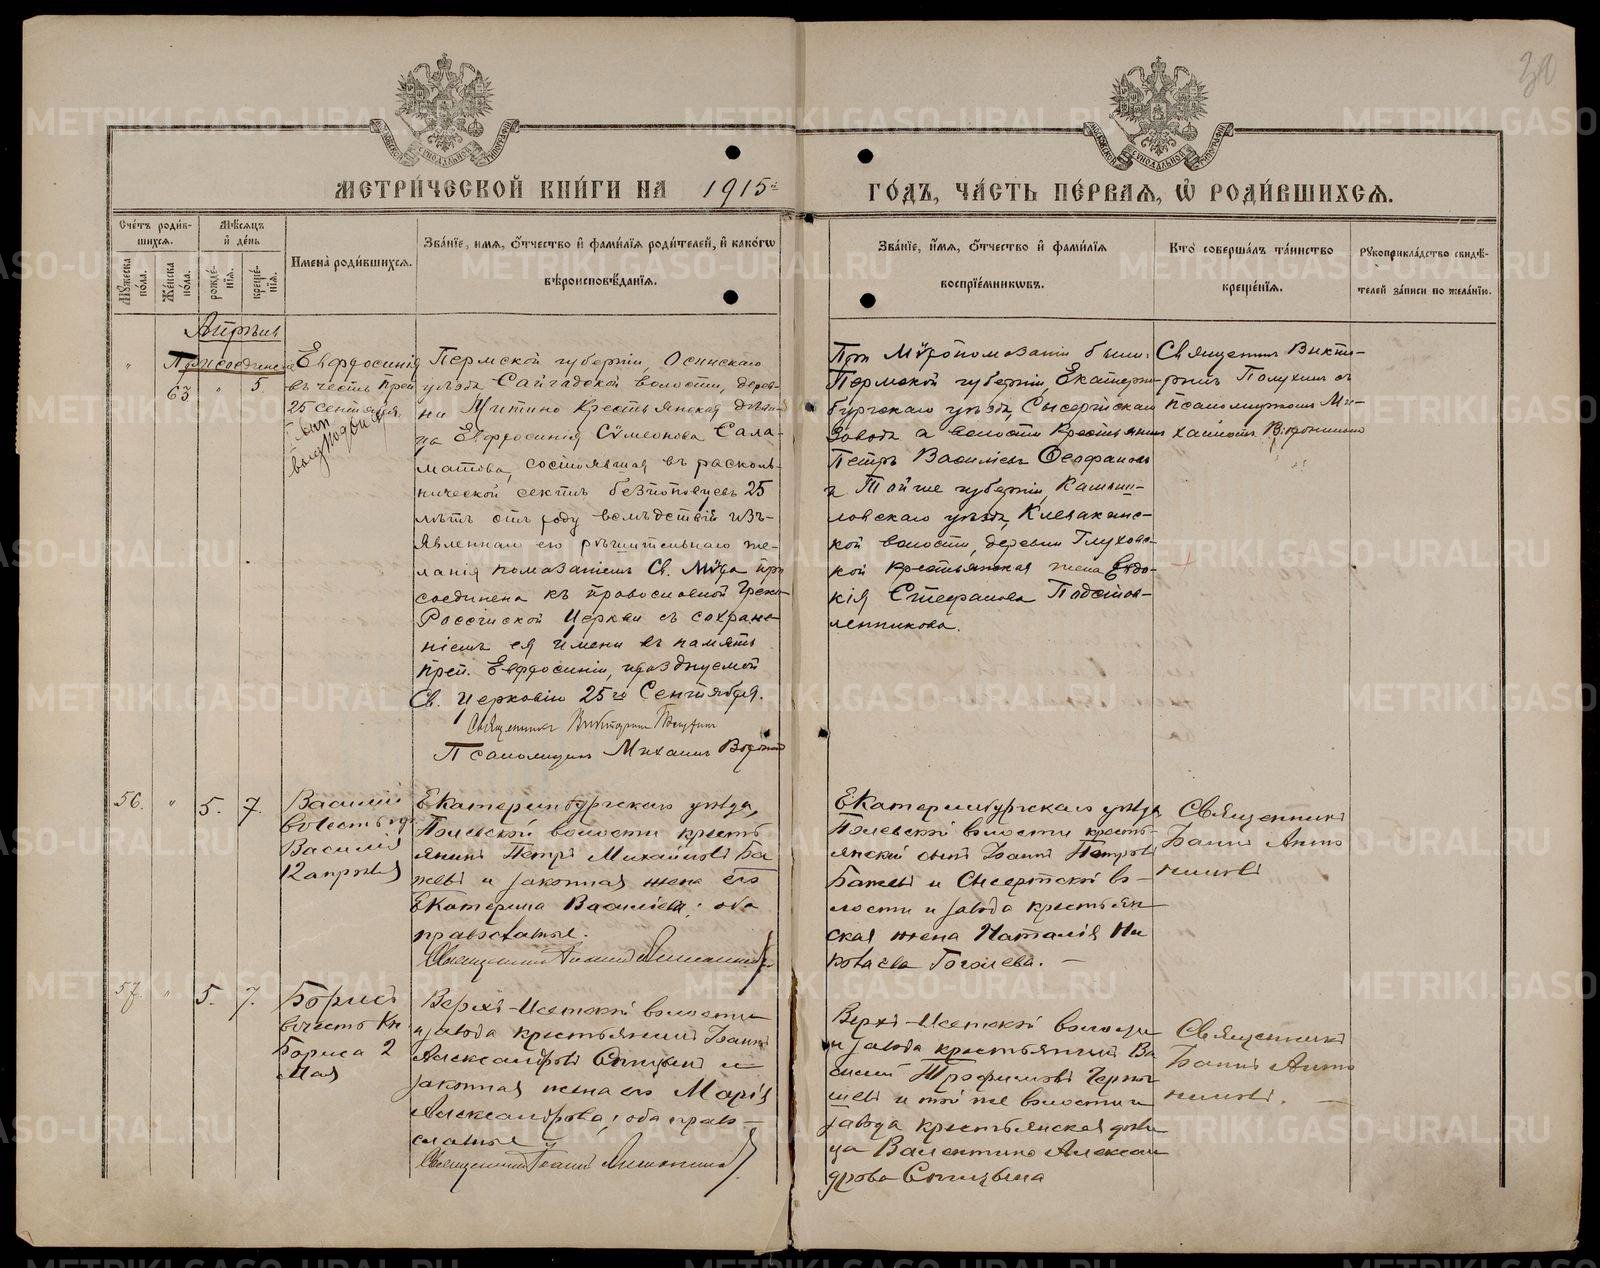 30
МОСКОВСКОЙ СѴНОДАЛЬНОЙ ТИПОГРАФІИ
МОСКОВСКОЙ СѴНОДАЛЬНОЙ ТИПОГРАФІИ
МЕТРИ́ЧЕСКОЙ КНИ́ГИ НА 1915й
ГО́ДЪ, ЧА́СТЬ ПЕ́РВАЯ, Ѡ҆ РОДИ́ВШИХСЯ.
Сче́тъ роди́в-
шихся.
Му́жеска по́ла.
Же́нска по́ла.
Мѣ́сяцъ
и҆ де́нь
рожде́-
нїя.
креще́-
нїя.
Имена̀ роди́вшихся.
Зва́нїе, и҆мя, ѻ҆́тчество и҆ фами́лїя роди́телей, и҆ како́гѡ
вѣроисповѣ́данїя.
Зва́нїе, и҆́мя, ѻ҆́тчество и҆ фами́лїя
воспрїе́мникѡвъ.
Кто̀ соверша́лъ та́инство
креще́нїя.
Рꙋкоприкла́дство свидѣ́-
телей за́писи по жела́нїю.
Апрѣль
Присоединен
" 63 " 5
Евфросинія
въ честь Преп
25 Сентября.
Пермской губерніи, Осинскаго
уѣзда Сайгадской волости, дерев-
ни Митино Крестьянская дѣви-
ца Евфросинія Сѵмеонова Сала-
матова, состоявшая въ расколь-
нической сектѣ безпоповцевъ 25
лѣтъ отъ роду вслѣдствій изъ-
явленнаго ею рѣшительнаго же-
ланія помазаніемъ Св. Мѵра при
соединена къ православной Греко-
Россійской Церкви съ сохране-
ніемъ ея имени въ память
Преп. Евфросиніи, празднуемой
Св. Церковію 25го Сентября.
Священникъ Викторинъ Полухинъ
Псаломщикъ Михаилъ
При Мѵропомазаніи были:
Пермской губерніи, Екатерин-
бургскаго уѣзда, Сысертскаго
Завода и волости Крестьянинъ
Петръ Василіевъ Феофановъ
и Той же губерніи, Камыш-
ловскаго уѣзда, Клевакинс-
кой волости, деревни Глуховс-
кой крестьянская жена Евдо-
кія Стефанова Подстав-
ленникова.
Священникъ Викто-
ринъ Полухинъ съ
псаломщикомъ Ми-
хаиломъ
56. " 5. 7.
Василій
въ честь
Василія
12 апрѣля
Екатеринбургскаго уѣзда,
Полевской волости кресть
янинъ Петръ Михайловъ Ба
жевъ и законная жена его
Екатерина Василіева; оба
православные.
Священникъ Іоаннъ
Екатеринбургскаго уѣзда
Полевской волости кресть-
янскій сынъ Іоаннъ Петровъ
Бажевъ и Сысертской во-
лости и завода крестьян
ская жена Наталія Ни
колаева Гоголева. —
Священникъ
Іоаннъ
57. " 5. 7.
Борисъ
въ честь Кн.
Бориса 2
Мая
Верхъ-Исетской волости
и завода крестьянинъ Іоаннъ
Александровъ Спицынъ и
законная жена его Марія
Александрова; оба право-
славные
Священникъ Іоаннъ
Верхъ-Исетской волости
и завода крестьянинъ Ва
силій Трофимовъ Черны
шевъ и той же волости и
завода крестьянская дѣви
ца Валентина Алексан
дрова Спицына
Священникъ
Іоаннъ
METRIKI.GASO-URAL.RU